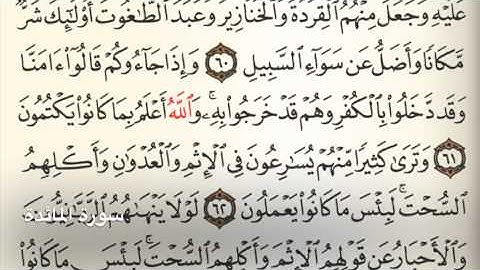 عَلَيْهِ وَجَعَلَ مِنْهُمُ ٱلْقِرَدَةَ وَٱلْخَنَازِيرَ وَعَبَدَ ٱلطَّٰغُوتَ أُو۟لَٰٓئِكَ شَرٌّ
مَّكَانًا وَأَضَلُّ عَن سَوَآءِ ٱلسَّبِيلِ ٦٠ وَإِذَا جَآءُوكُمْ قَالُوٓا۟ ءَامَنَّا
وَقَد دَّخَلُوا۟ بِٱلْكُفْرِ وَهُمْ قَدْ خَرَجُوا۟ بِهِۦ ۚ وَٱللَّهُ أَعْلَمُ بِمَا كَانُوا۟ يَكْتُمُونَ
٦١ وَتَرَىٰ كَثِيرًا مِّنْهُمْ يُسَٰرِعُونَ فِى ٱلْإِثْمِ وَٱلْعُدْوَٰنِ وَأَكْلِهِمُ
ٱلسُّحْتَ ۚ لَبِئْسَ مَا كَانُوا۟ يَعْمَلُونَ ٦٢ لَوْلَا يَنْهَىٰهُمُ ٱلرَّبَّٰنِيُّونَ
وَٱلْأَحْبَارُ عَن قَوْلِهِمُ ٱلْإِثْمَ وَأَكْلِهِمُ ٱلسُّحْتَ ۚ لَبِئْسَ مَا كَانُوا۟
سورة المائدة